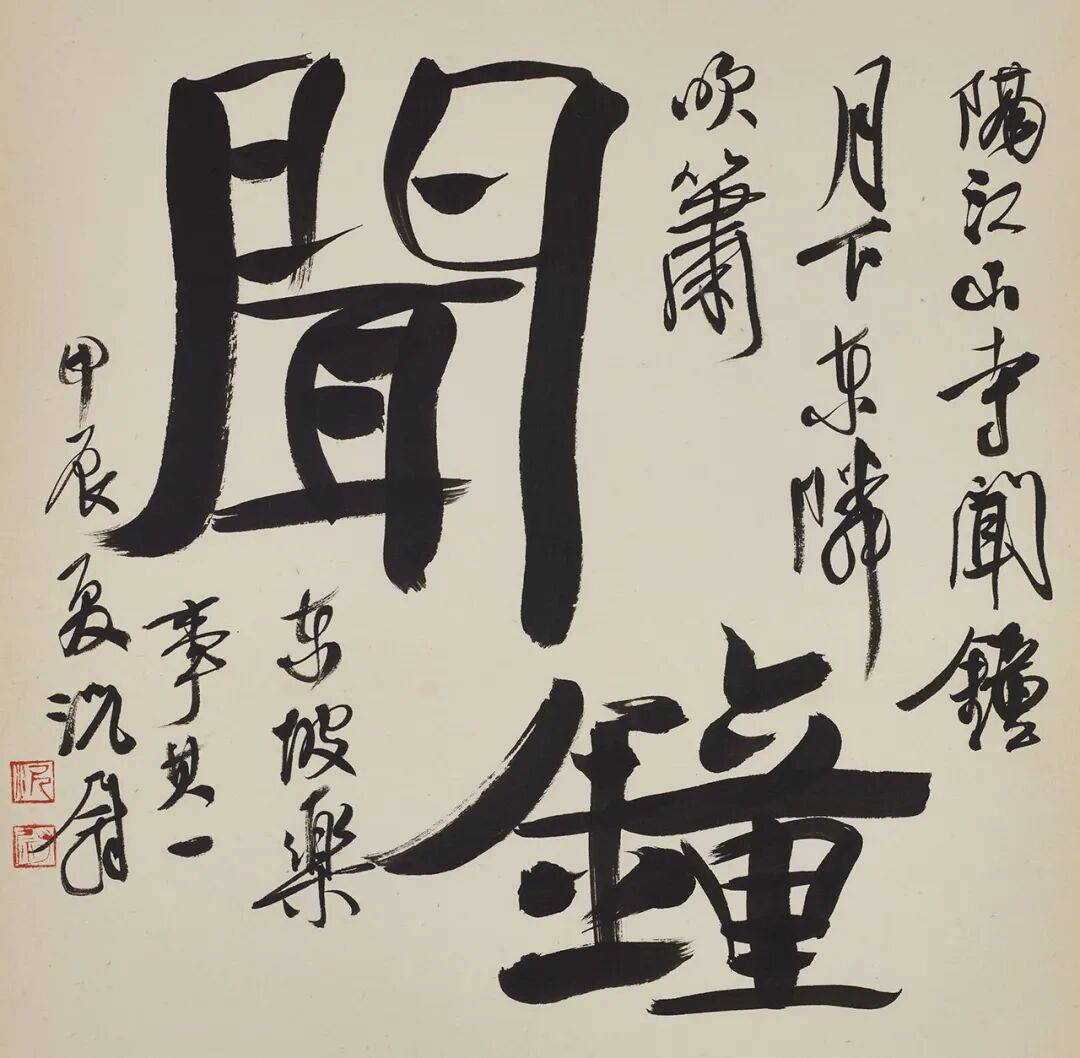 隔江山寺聞鐘
月下東隣
吹簫
聞鐘
東坡樂
事其一
甲辰夏 翁